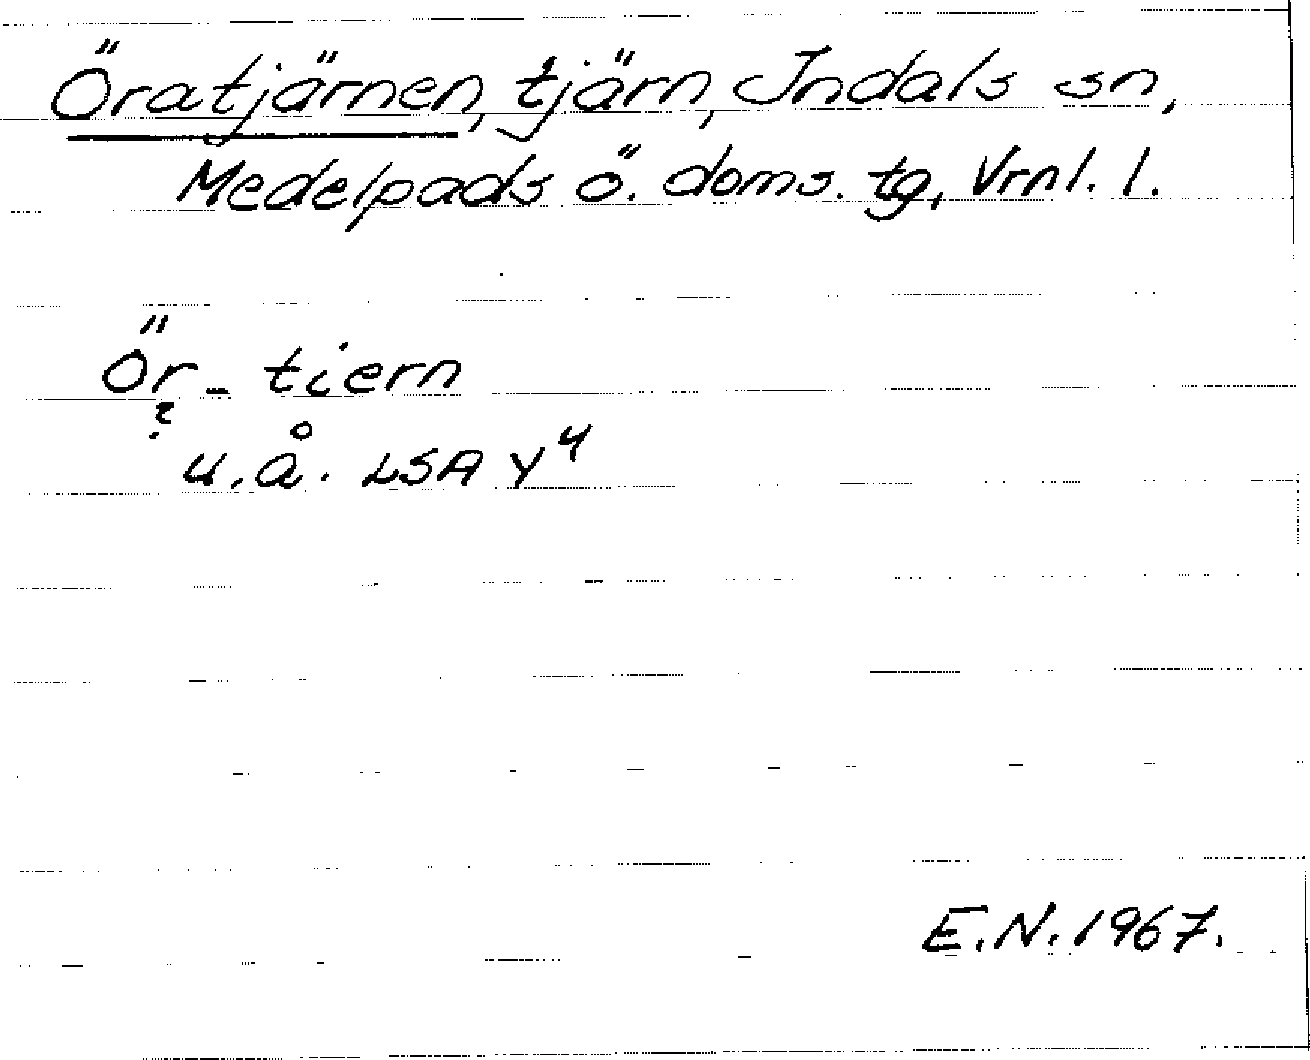 Öratjärnen, tjärn, Indals sn,
Medelpads ö. doms. tg, Vrnl. l.
Ör - tiern
?
u.å. LSA Y4
E.N. 1967.